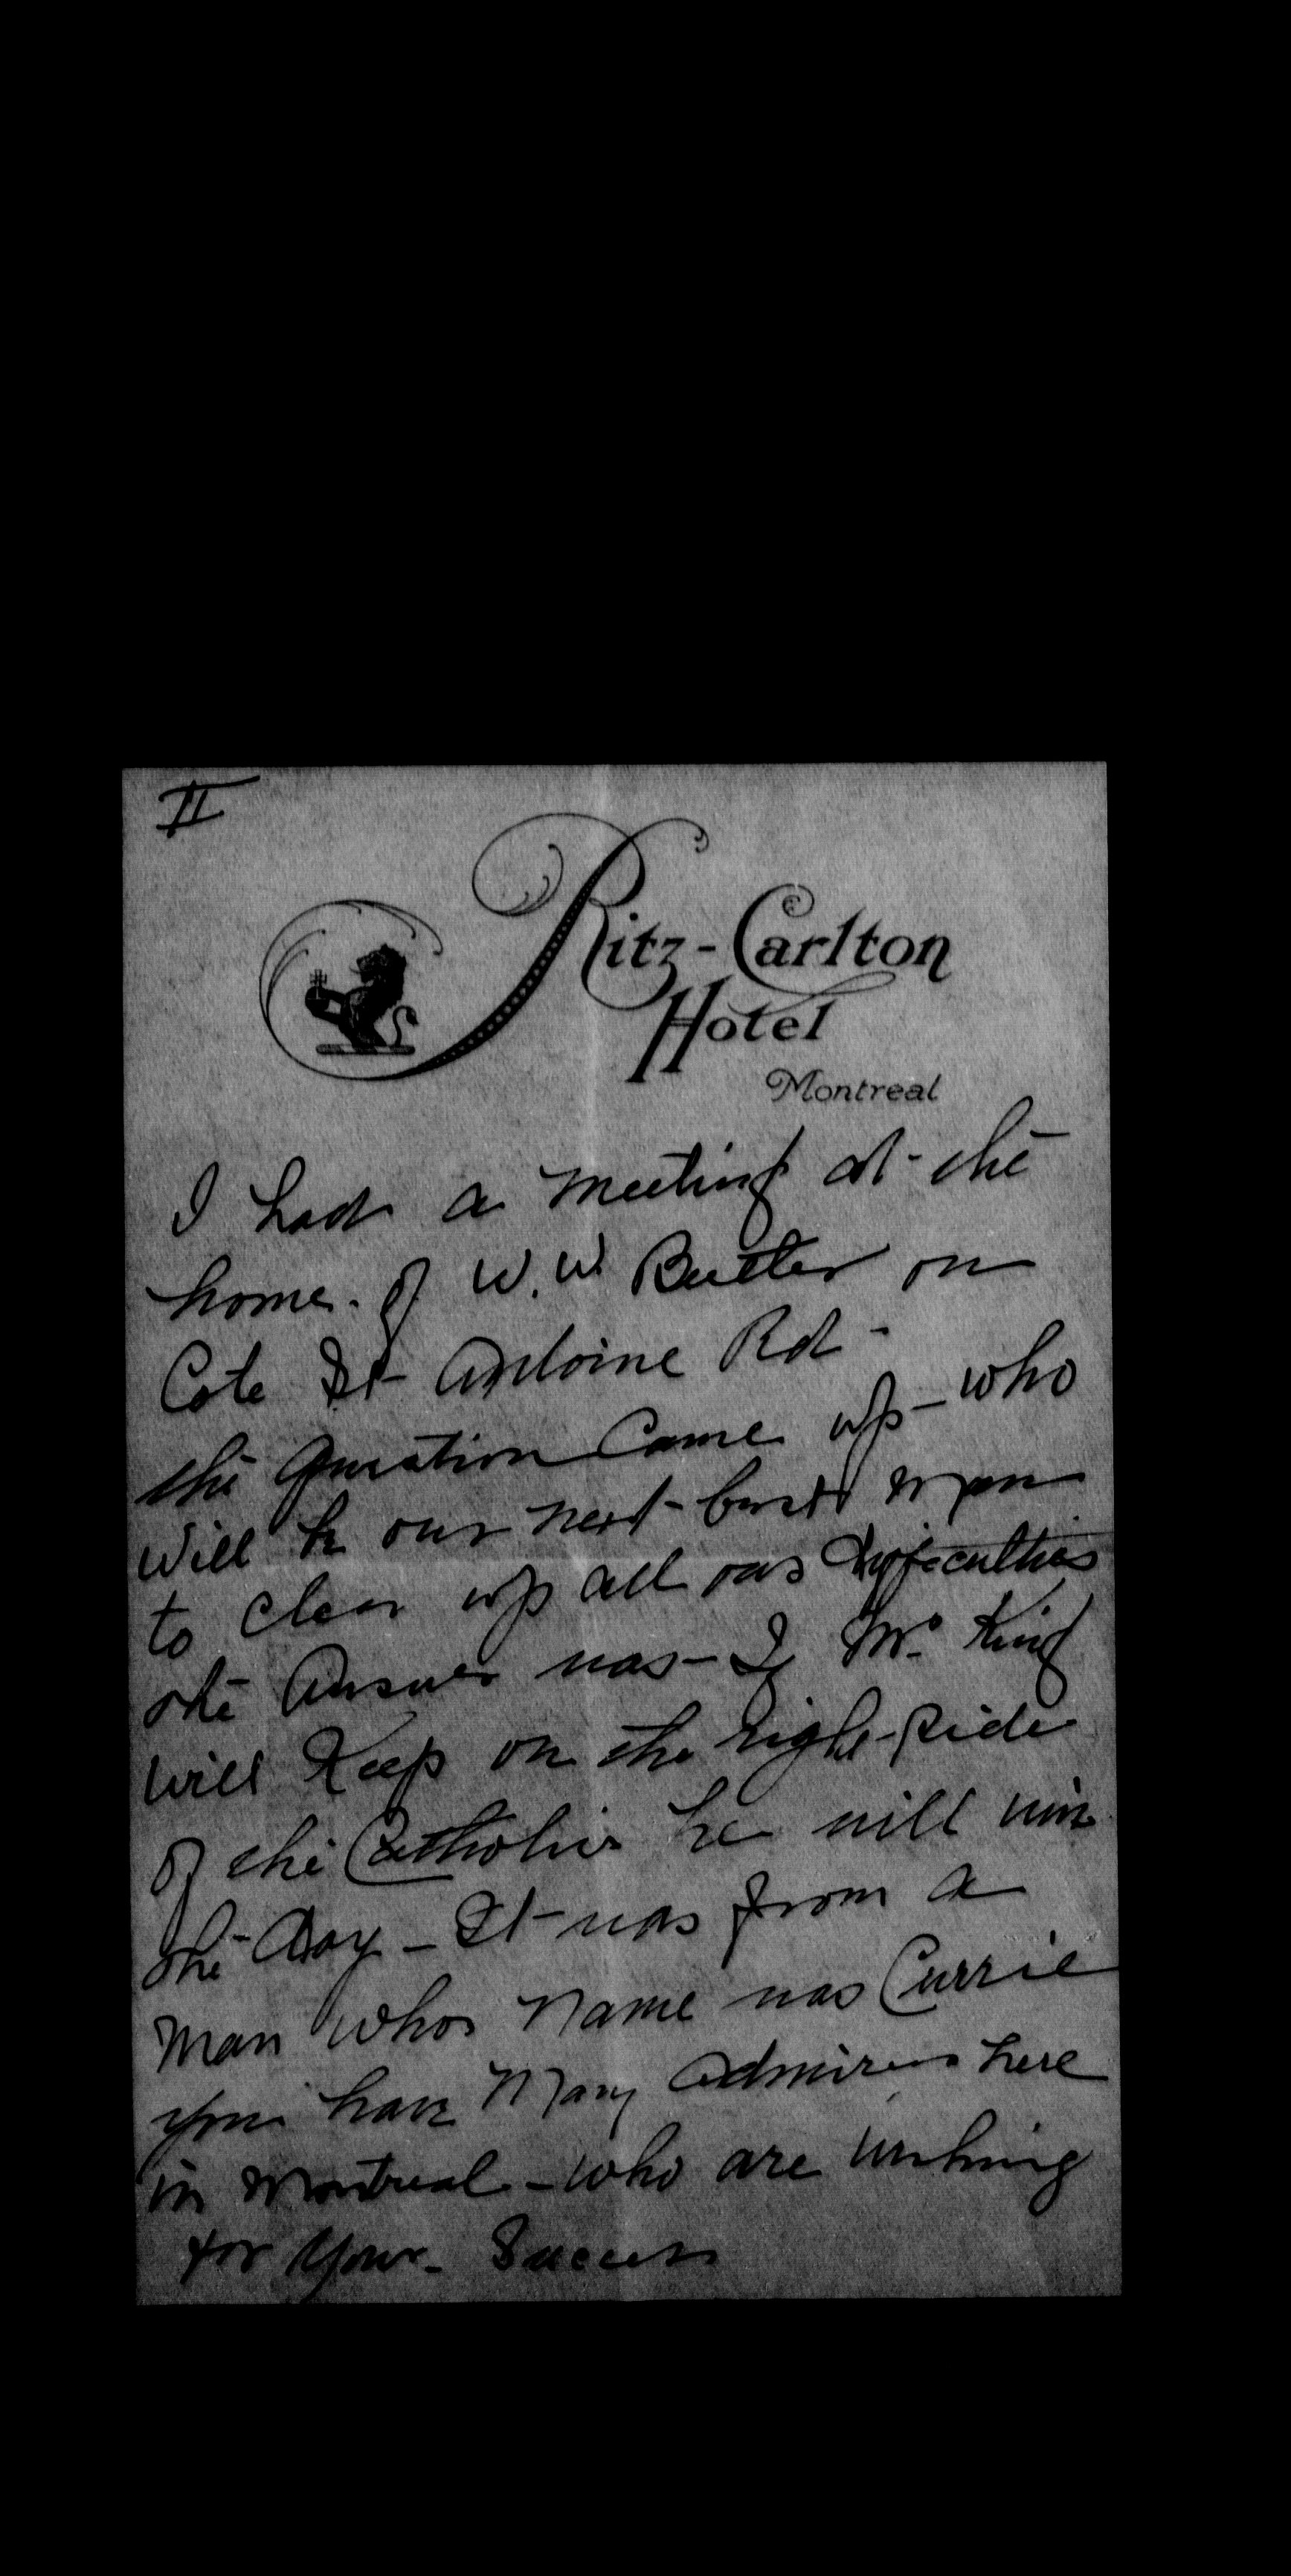 II
Ritz-Carlton
Hotel
Montreal
I had a meeting at the
home of W.W. Butler on
Cote St Antoine Rd -
the question came up - who
will be our next best man
to clear up all our difficulties
the answer was - If Mr. King
will keep on the right side
of the Catholics he will win
the day - It was from a
man whos name was Currie
you have many admirers here
in Montreal - who are wishing
for your Success